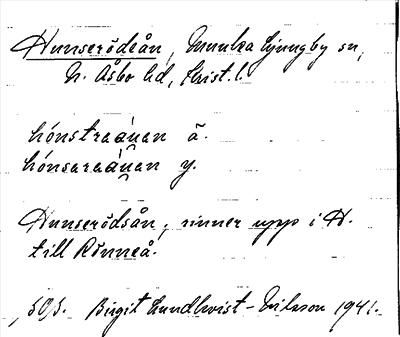 Hunserödeån, Munka Ljungby sn,
N. Åsbo hd, Krist. l.
hónstraáu̯an ä.
hónsaraáu̯an y.
Hunserödsån, rinner upp i H.
till Rönneå.
Birgit Lundkvist-Nilsson 1941.